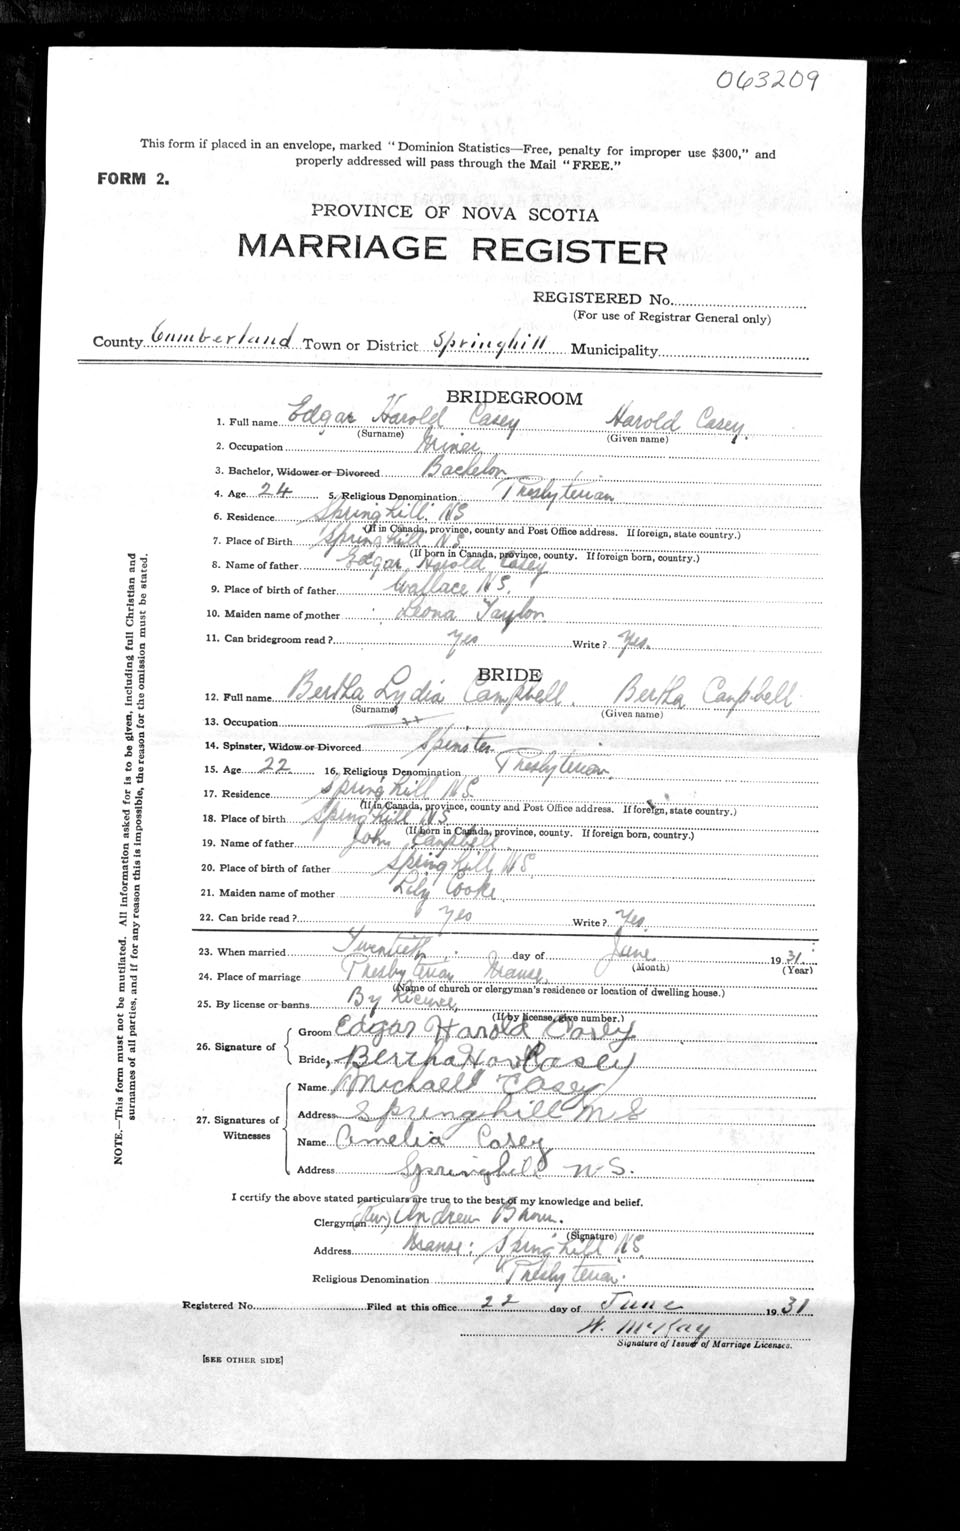 063209
This form if placed in an envelope, marked "Dominion Statistics—Free, penalty for improper use $300," and
properly addressed will pass through the Mail "FREE."
FORM 2.
PROVINCE OF NOVA SCOTIA
MARRIAGE REGISTER
REGISTERED No.
(For use of Registrar General only)
County Cumberland Town or District Springhill Municipality
BRIDEGROOM
1. Full name Edgar Harold Casey Harold Casey.
(Surname) (Given name)
2. Occupation Miner
3. Bachelor, Widower or Divorced Bachelor
4. Age 24 5. Religious Denomination Presbyterian
6. Residence Springhill N S
(If in Canada, province, county and Post Office address. If foreign, state country.)
7. Place of Birth Springhill N S
(If born in Canada, province, county. If foreign born, country.)
8. Name of father Edgar Harold Casey
9. Place of birth of father Wallace N S.
10. Maiden name of mother Leona Taylor
11. Can bridegroom read? Yes Write? Yes.
BRIDE
12. Full name Bertha Lydia Campbell. Bertha Campbell
(Surname) (Given name)
13. Occupation
14. Spinster, Widow or Divorced Spinster
15. Age 22 16. Religious Denomination Presbyterian.
17. Residence Springhill N S.
(If in Canada, province, county and Post Office address. If foreign, state country.)
18. Place of birth Springhill N S
(If born in Canada, province, county. If foreign born, country.)
19. Name of father John Campbell
20. Place of birth of father Springhill N S
21. Maiden name of mother Lily Cooke
22. Can bride read? Yes Write? Yes.
23. When married Twentieth day of June 1931
(Month) (Year)
24. Place of marriage Presbyterian Manse
(Name of church or clergyman's residence or location of dwelling house.)
25. By license or banns By License
(If by license, give number.)
26. Signature of
Groom Edgar Harold Casey
Bride, Bertha Casey
27. Signatures of Witnesses
Name Michaell Casey
Address Springhill N S
Name Amelia Casey
Address Springhill N.S.
I certify the above stated particulars are true to the best of my knowledge and belief.
Clergyman (Rev) Andrew
(Signature)
Address Manse: Springhill N S.
Religious Denomination Presbyterian.
Registered No. Filed at this office 22 day of June 1931
W. McKay
Signature of Issuer of Marriage Licenses.
[SEE OTHER SIDE]
NOTE.—This form must not be mutilated. All information asked for is to be given, including full Christian and
surnames of all parties, and if for any reason this is impossible, the reason for the omission must be stated.